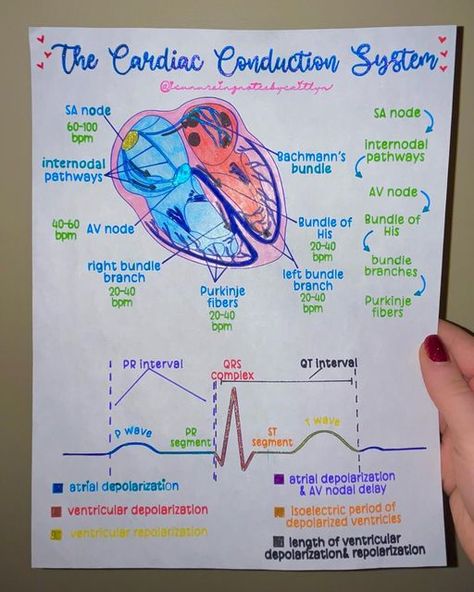 The Cardiac Conduction System
SA node
60-100
bpm
internodal
pathways
40-60
bpm
AV node
right bundle
branch
20-40
bpm
Purkinje
fibers
20-40
bpm
Bachmann's
bundle
Bundle of
His
20-40
bpm
left bundle
branch
20-40
bpm
SA node
internodal
pathways
AV node
Bundle of
His
bundle
branches
Purkinje
fibers
PR interval
QRS
complex
QT interval
P wave
PR
segment
ST
segment
T wave
atrial depolarization
ventricular depolarization
ventricular repolarization
atrial depolarization
& AV nodal delay
isoelectric period of
depolarized ventricles
length of ventricular
depolarization& repolarization